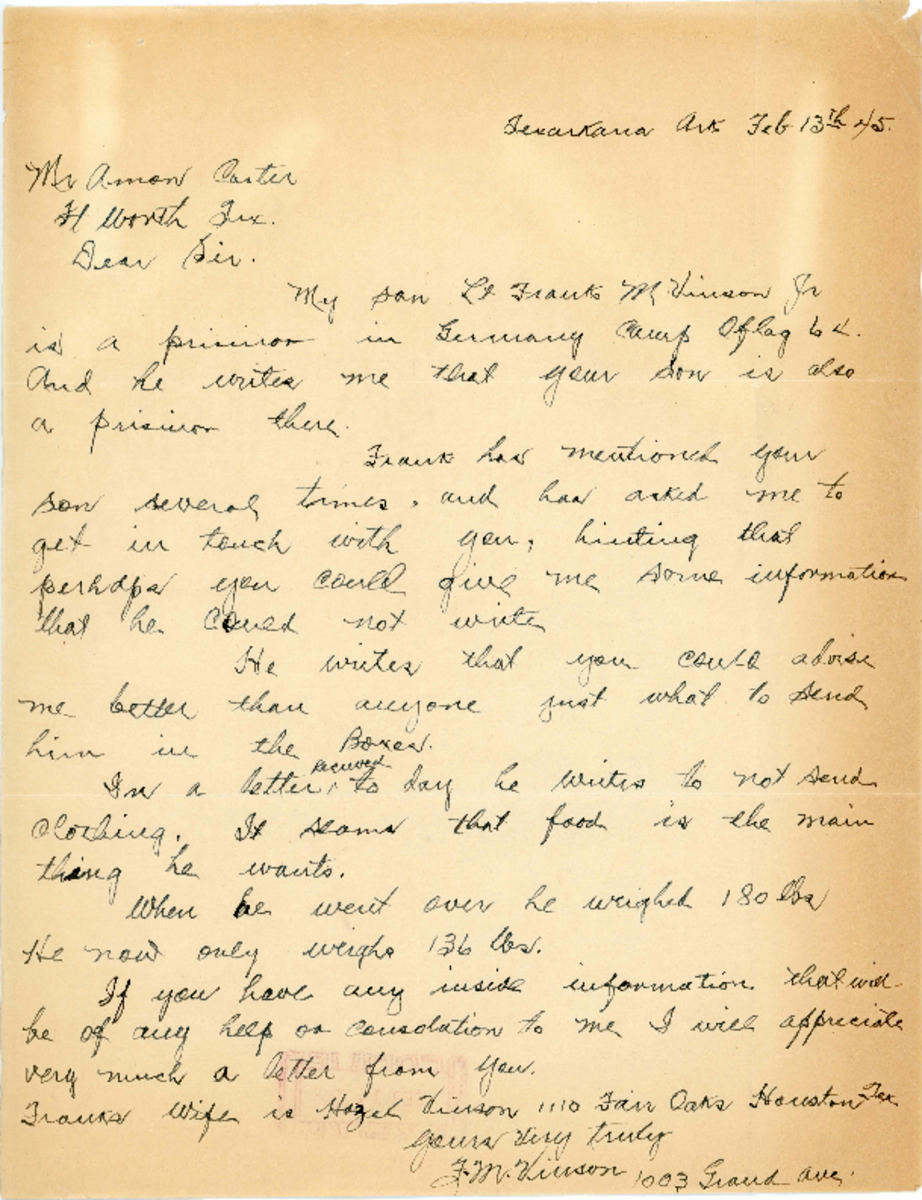 Texarkana Ark Feb 13th 45.
Mr Amon Carter
Ft Worth Tex.
Dear Sir.
My son Lt Frank M. Vinson Jr
is a prisinor in Germany Camp Oflag 64.
And he writes me that your son is also
a prisinor there.
Frank has mentioned your
son several times, and has asked me to
get in touch with you, hinting that
perhaps you could give me some information
that he could not write
He writes that you could advise
me better than anyone just what to send
him in the Boxes.
In a letter received to day he writes to not send
clothing. It seams that food is the main
thing he wants.
When he went over he weighed 180 lbs
He now only weighs 136 lbs.
If you have any inside information that will
be of any help or consolation to me I will appreciate
very much a letter from you.
Franks Wife is Hazel Vinson 1110 Fair Oaks Houston Tex
Yours Very truly
F. M. Vinson 1003 Grand Ave.